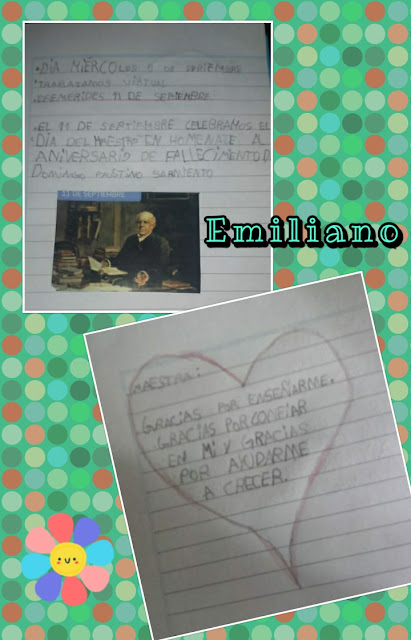 • DÍA MIÉRCOLES 8 DE SEPTIEMBRE
• TRABAJAMOS VIRTUAL
• EFEMÉRIDES 11 DE SEPTIEMBRE
• EL 11 DE SEPTIEMBRE CELEBRAMOS EL
DÍA DEL MAESTRO EN HOMENAJE A
ANIVERSARIO DE FALLECIMIENTO D
DOMINGO FAUSTINO SARMIENTO
11 DE SEPTIEMBRE
Emiliano
MAESTRA:
GRACIAS POR ENSEÑARME.
GRACIAS POR CONFIAR
EN MÍ Y GRACIAS
POR AYUDARME
A CRECER.